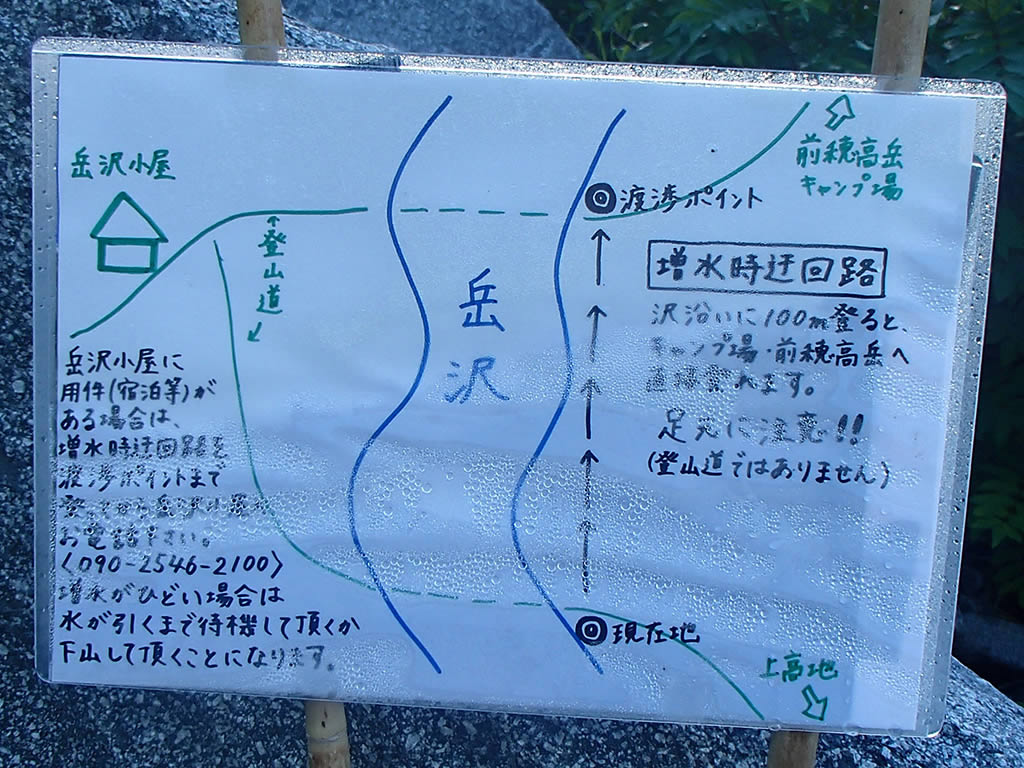 岳沢小屋
↑登山道
岳沢
前穂高岳
キャンプ場
渡渉ポイント
増水時迂回路
沢沿いに100m登ると、
キャンプ場・前穂高岳へ
直接登れます。
足元に注意!!
(登山道ではありません)
岳沢小屋に
用件(宿泊等)が
ある場合は、
増水時迂回路を
渡渉ポイントまで
登ってから岳沢小屋へ
お電話下さい。
〈090-2546-2100〉
増水がひどい場合は
水が引くまで待機して頂くか
下山して頂くことになります。
現在地
上高地